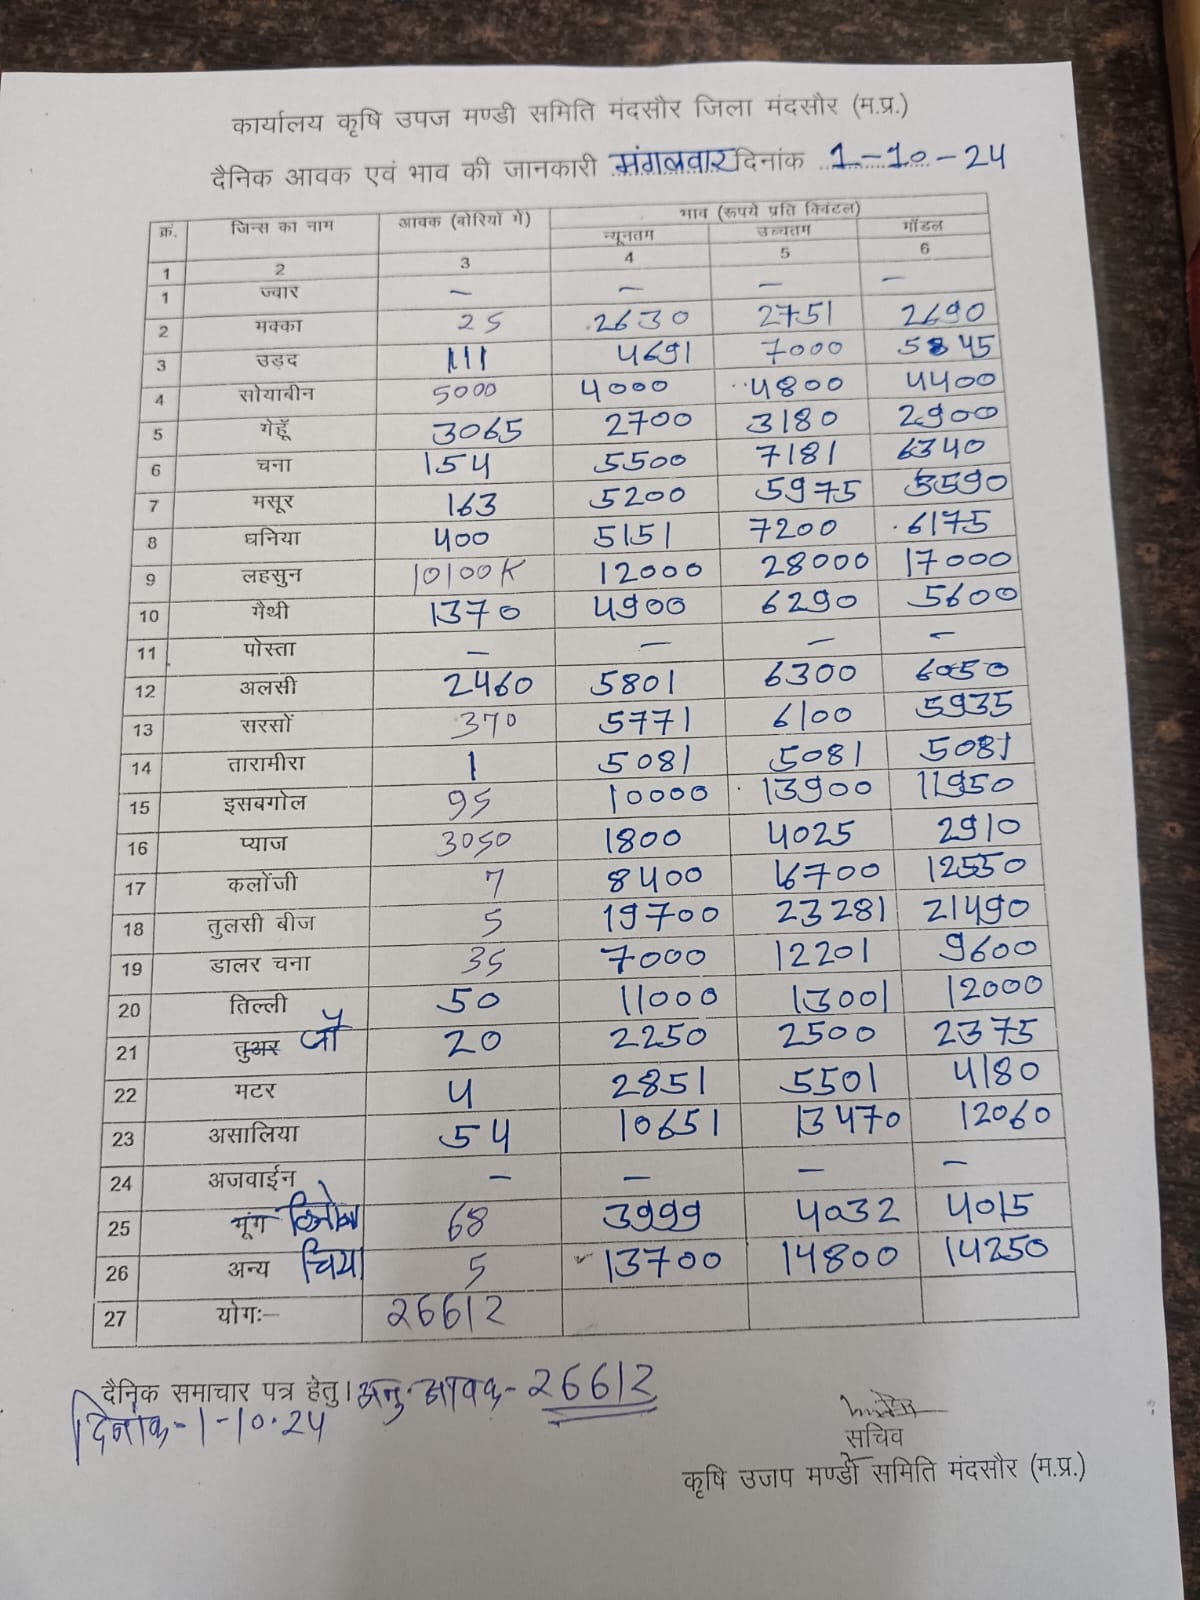 कार्यालय कृषि उपज मण्डी समिति मंदसौर जिला मंदसौर (म.प्र.)
दैनिक आवक एवं भाव की जानकारी मंगलवार दिनांक 1-10-24
क्रं. जिन्स का नाम आवक (बोरियों में) भाव (रूपये प्रति क्विंटल)
न्यूनतम उच्चतम मॉडल
1 2 3 4 5 6
1 ज्वार – – – –
2 मक्का 25 2630 2751 2690
3 उड़द 111 4691 7000 5845
4 सोयाबीन 5000 4000 4800 4400
5 गेहूँ 3065 2700 3180 2900
6 चना 154 5500 7181 6340
7 मसूर 163 5200 5975 5590
8 धनिया 400 5151 7200 6175
9 लहसुन 10100K 12000 28000 17000
10 मैथी 1370 4900 6290 5600
11 पोस्ता – – – –
12 अलसी 2460 5801 6300 6050
13 सरसों 370 5771 6100 5935
14 तारामीरा 1 5081 5081 5081
15 इसबगोल 95 10000 13900 11950
16 प्याज 3050 1800 4025 2910
17 कलोंजी 7 8400 16700 12550
18 तुलसी बीज 5 19700 23281 21490
19 डालर चना 35 7000 12201 9600
20 तिल्ली 50 11000 13001 12000
21 तुअर जौ 20 2250 2500 2375
22 मटर 4 2851 5501 4180
23 असालिया 54 10651 13470 12060
24 अजवाईन – – – –
25 मूंग 68 3999 4032 4015
26 अन्य चिया 5 13700 14800 14250
27 योगः– 26612
दैनिक समाचार पत्र हेतु। अनु. आवक- 26612
दिनांक-1-10.24
सचिव
कृषि उजप मण्डी समिति मंदसौर (म.प्र.)